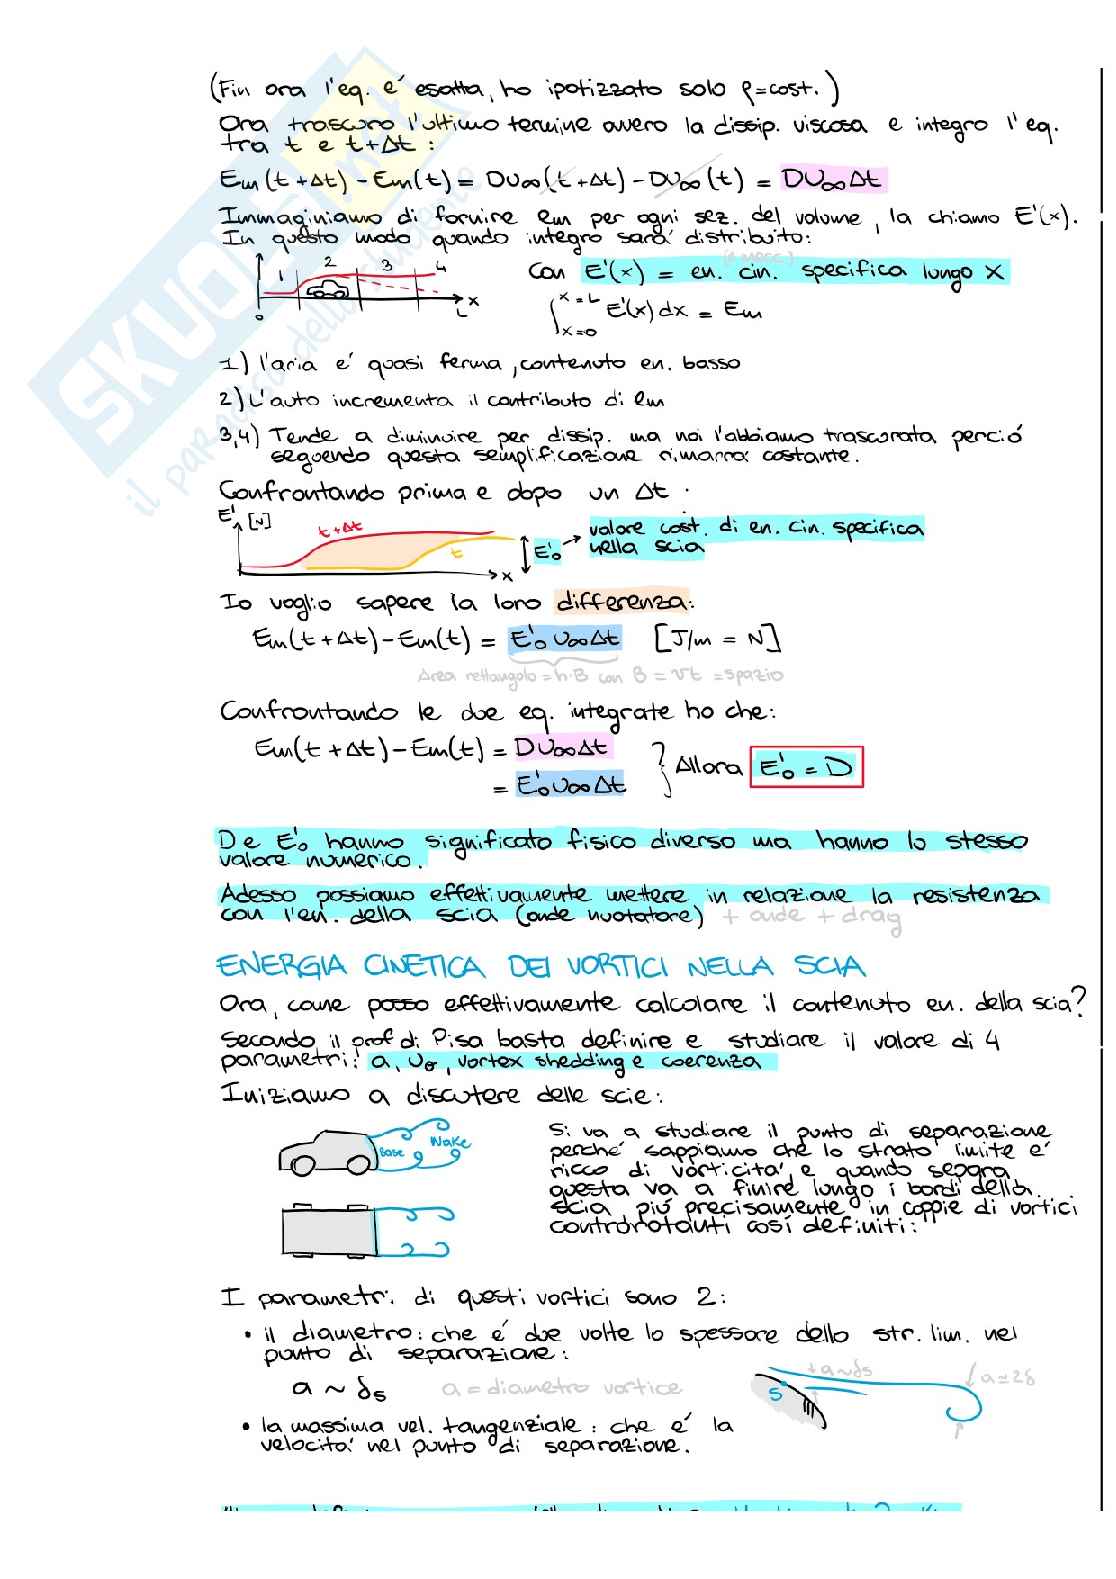 (Fin ora l'eq. é esatta, ho ipotizzato solo ρ=cost.)
Ora trascuro l'ultimo termine ovvero la dissip. viscosa e integro l'eq.
tra t e t+Δt:
Em(t+Δt)-Em(t)= DU∞(t+Δt)-DU∞(t) = DU∞Δt
Immaginiamo di fornire em per ogni sez. del volume, la chiamo E'(x).
In questo modo quando integro sará distribuito:
1 2 3 4
x
0 L
Con E'(x) = en. cin. specifica lungo x
∫ x=L x=0 E'(x)dx = Em
1) l'aria é quasi ferma, contenuto en. basso
2) L'auto incrementa il contributo di em
3,4) Tende a diminuire per dissip. ma noi l'abbiamo trascurata perció
seguendo questa semplificazione rimarrá costante.
Confrontando prima e dopo un Δt:
E' [N]
t+Δt
t
x
E'o → valore cost. di en. cin. specifica
nella scia
Io voglio sapere la loro differenza:
Em(t+Δt)-Em(t) = E'o U∞Δt [J/m = N]
Area rettangolo = h·B con B = vt = spazio
Confrontando le due eq. integrate ho che:
Em(t+Δt)-Em(t) = DU∞Δt
= E'o U∞Δt
} Allora E'o = D
D e E'o hanno significato fisico diverso ma hanno lo stesso
valore numerico.
Adesso possiamo effettivamente mettere in relazione la resistenza
con l'en. della scia (onde nuotatore) + onde + drag
ENERGIA CINETICA DEI VORTICI NELLA SCIA
Ora, come posso effettivamente calcolare il contenuto en. della scia?
Secondo il prof di Pisa basta definire e studiare il valore di 4
parametri: a, vσ, vortex shedding e coerenza
Iniziamo a discutere delle scie:
Base
Wake
Si va a studiare il punto di separazione
perché sappiamo che lo strato limite é
ricco di vorticitá, e quando separa
questa va a finire lungo i bordi della
scia, piú precisamente in coppie di vortici
controrotanti cosí definiti:
I parametri di questi vortici sono 2:
• il diametro: che é due volte lo spessore dello str. lim. nel
punto di separazione:
a ~ δs a = diametro vortice
S
a~δs
a=2δ
• la massima vel. tangenziale: che é la
velocitá nel punto di separazione.
SKUOLA.net
il paradiso dello studente